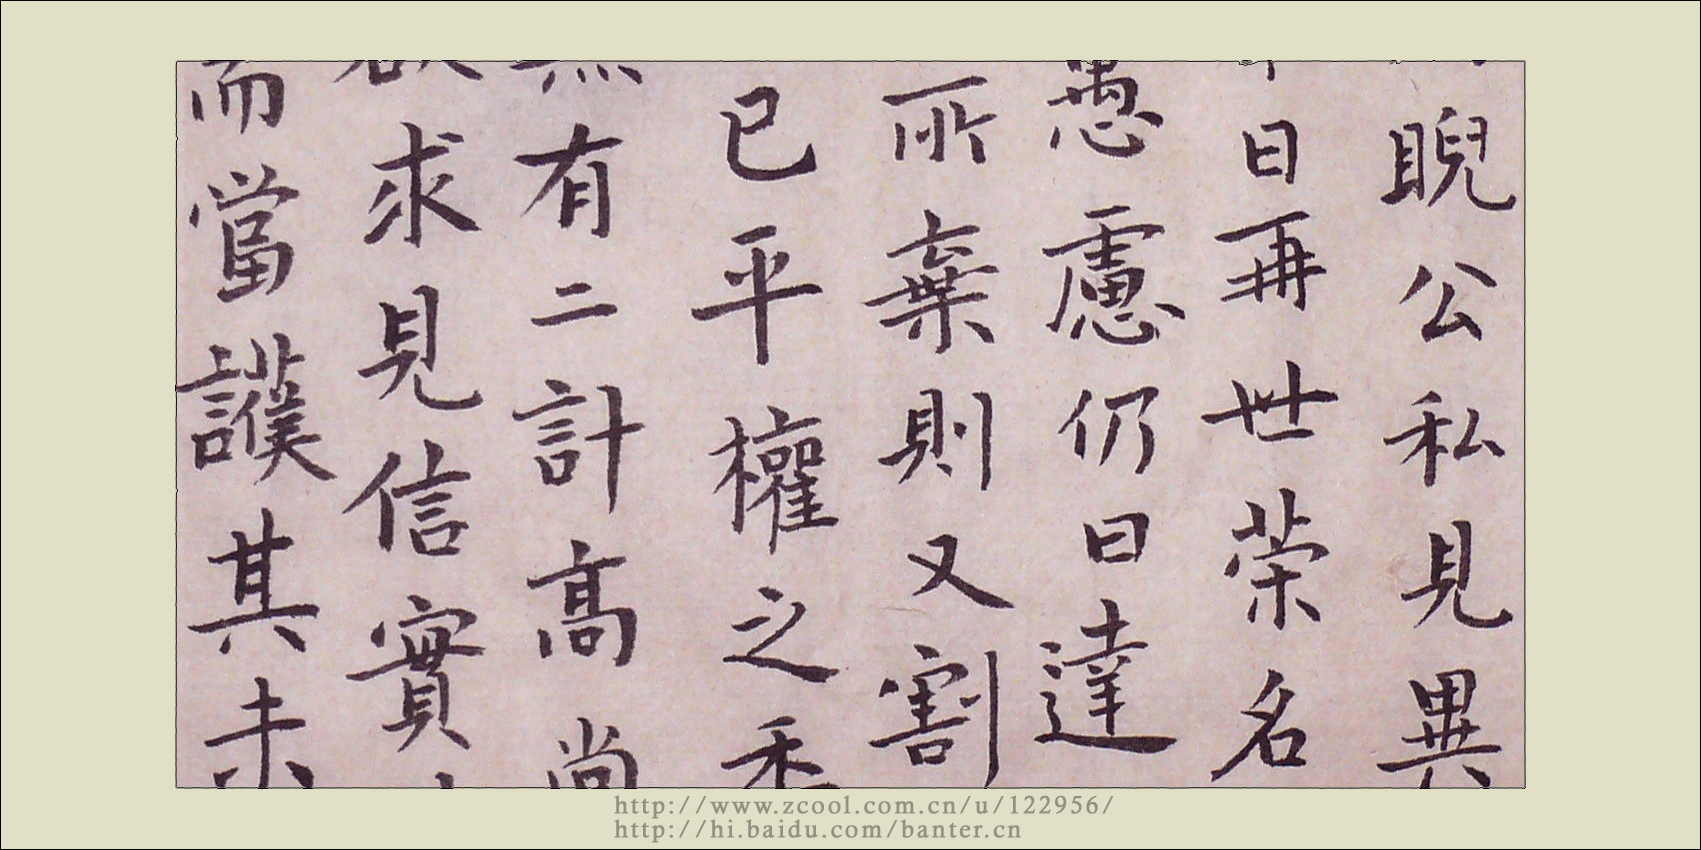 睨公私見異
日再世榮名
愚慮仍日達
所棄則又割
已平權之
有二計高尚
求見信實
而當護其未
http://www.zcool.com.cn/u/122956/
http://hi.baidu.com/banter.cn